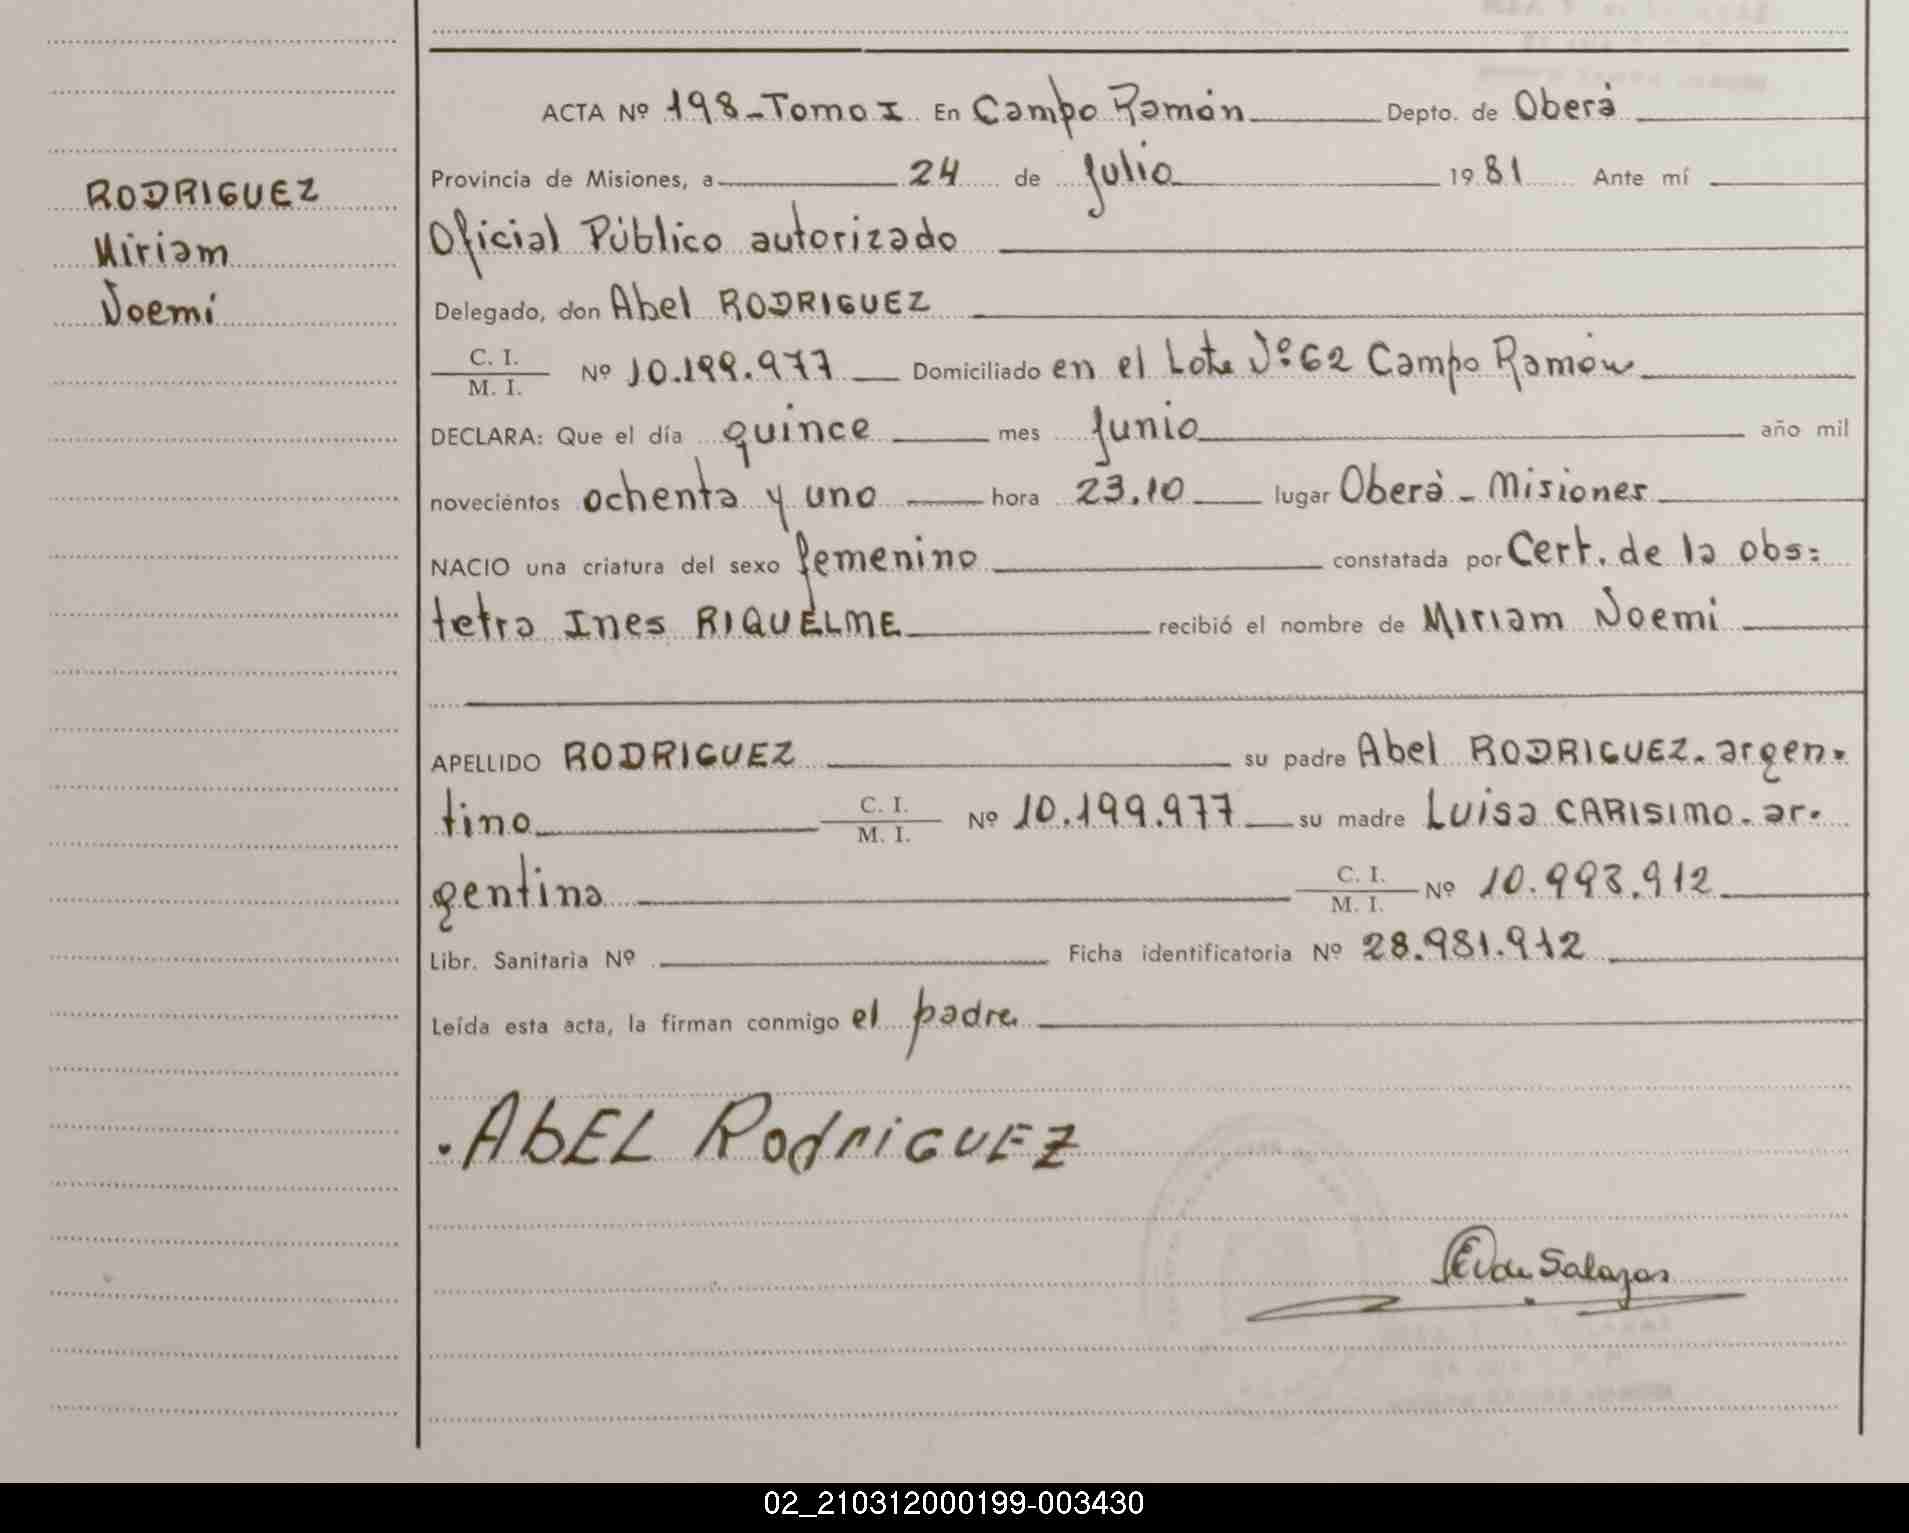 ACTA Nº 198-Tomo I En Campo Ramón Depto. de Oberá
Provincia de Misiones, a 24 de Julio 1981 Ante mí
Oficial Público autorizado
Delegado, don Abel RODRIGUEZ
C. I.
M. I.
Nº 10.199.977 Domiciliado en el Lote Nº 62 Campo Ramón
DECLARA: Que el día quince mes Junio año mil
noveciéntos ochenta y uno hora 23.10 lugar Oberá - Misiones
NACIO una criatura del sexo femenino constatada por Cert. de la obs=
tetra Ines RIQUELME recibió el nombre de Miriam Noemi
APELLIDO RODRIGUEZ su padre Abel RODRIGUEZ. argen-
tino C. I.
M. I.
Nº 10.199.977 su madre Luisa CARISIMO. ar-
gentina C. I.
M. I.
Nº 10.993.912
Libr. Sanitaria Nº Ficha identificatoria Nº 28.981.912
Leída esta acta, la firman conmigo el padre
.AbEL RodriGUEZ
de Salazar
RODRIGUEZ
Miriam
Noemí
02_210312000199-003430